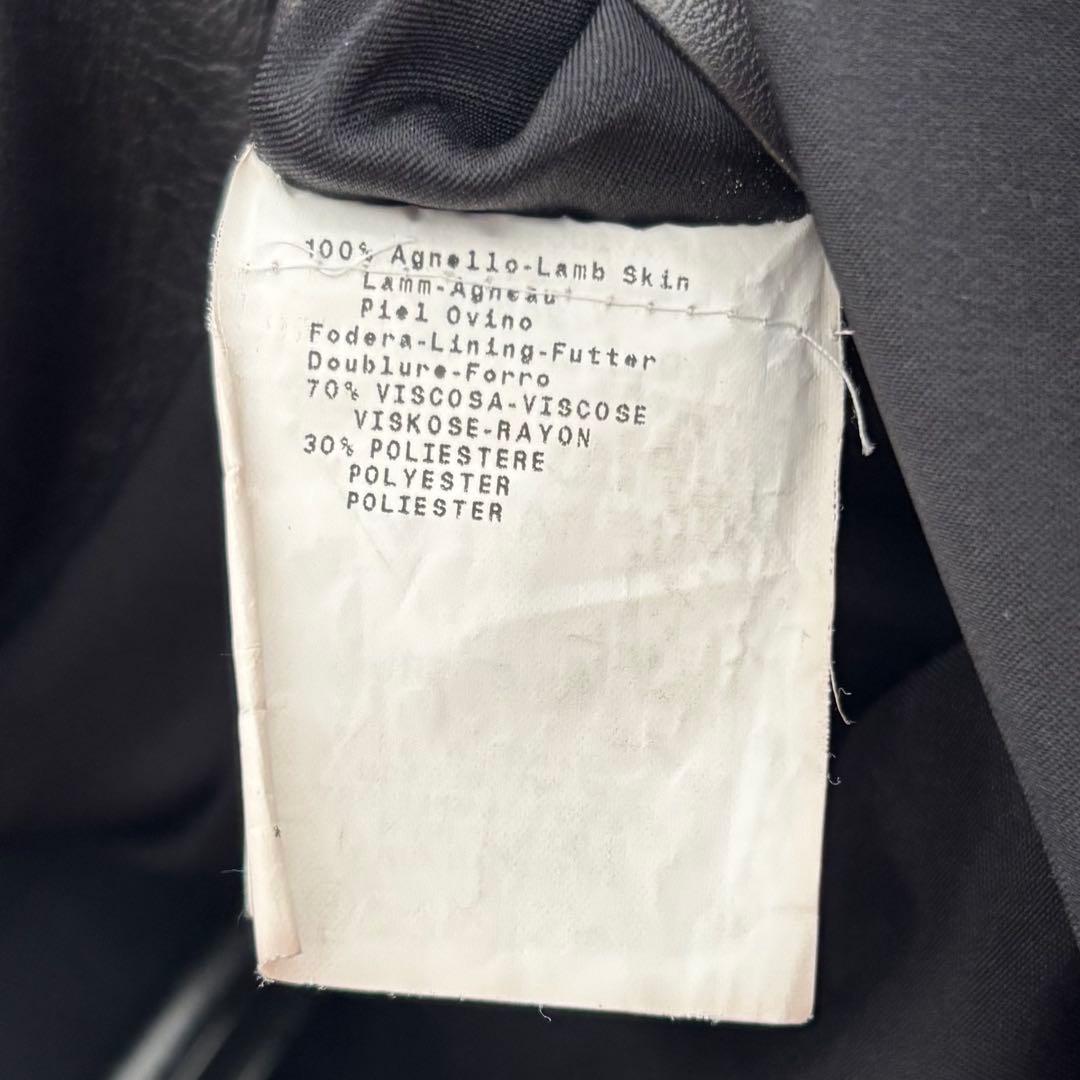 100% Agnello-Lamb Skin
Lamm-Agneau
Piel Ovino
Fodera-Lining-Futter
Doublure-Forro
70% VISCOSA-VISCOSE
VISKOSE-RAYON
30% POLIESTERE
POLYESTER
POLIESTER